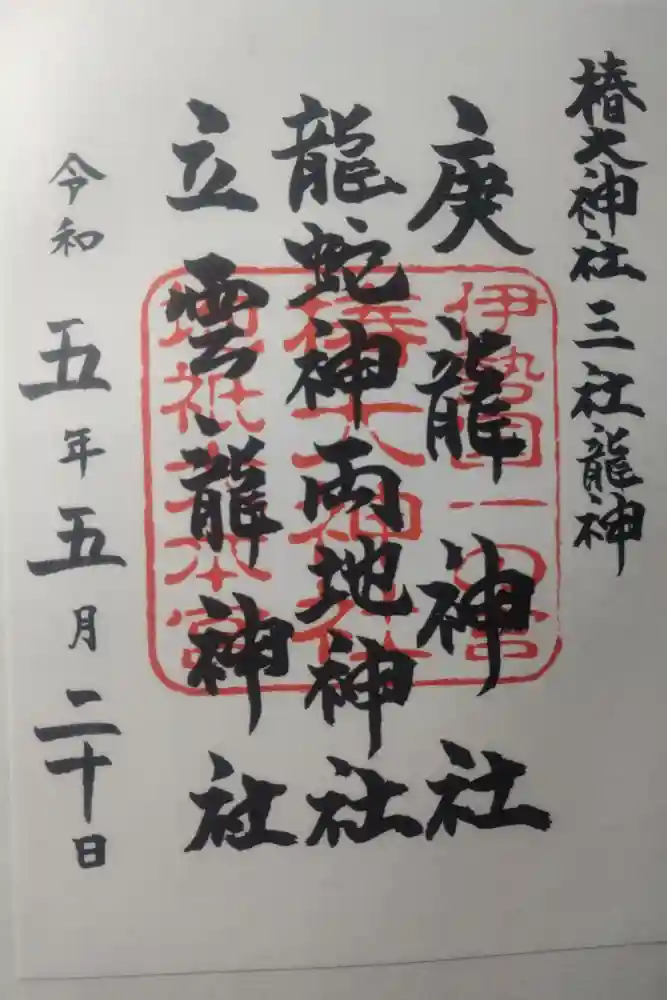 椿大神社三社龍神
庚龍神社
龍蛇神両地神社
立雲龍神社
令和五年五月二十日
伊勢国一の宮
椿大神社
地祇大本宮